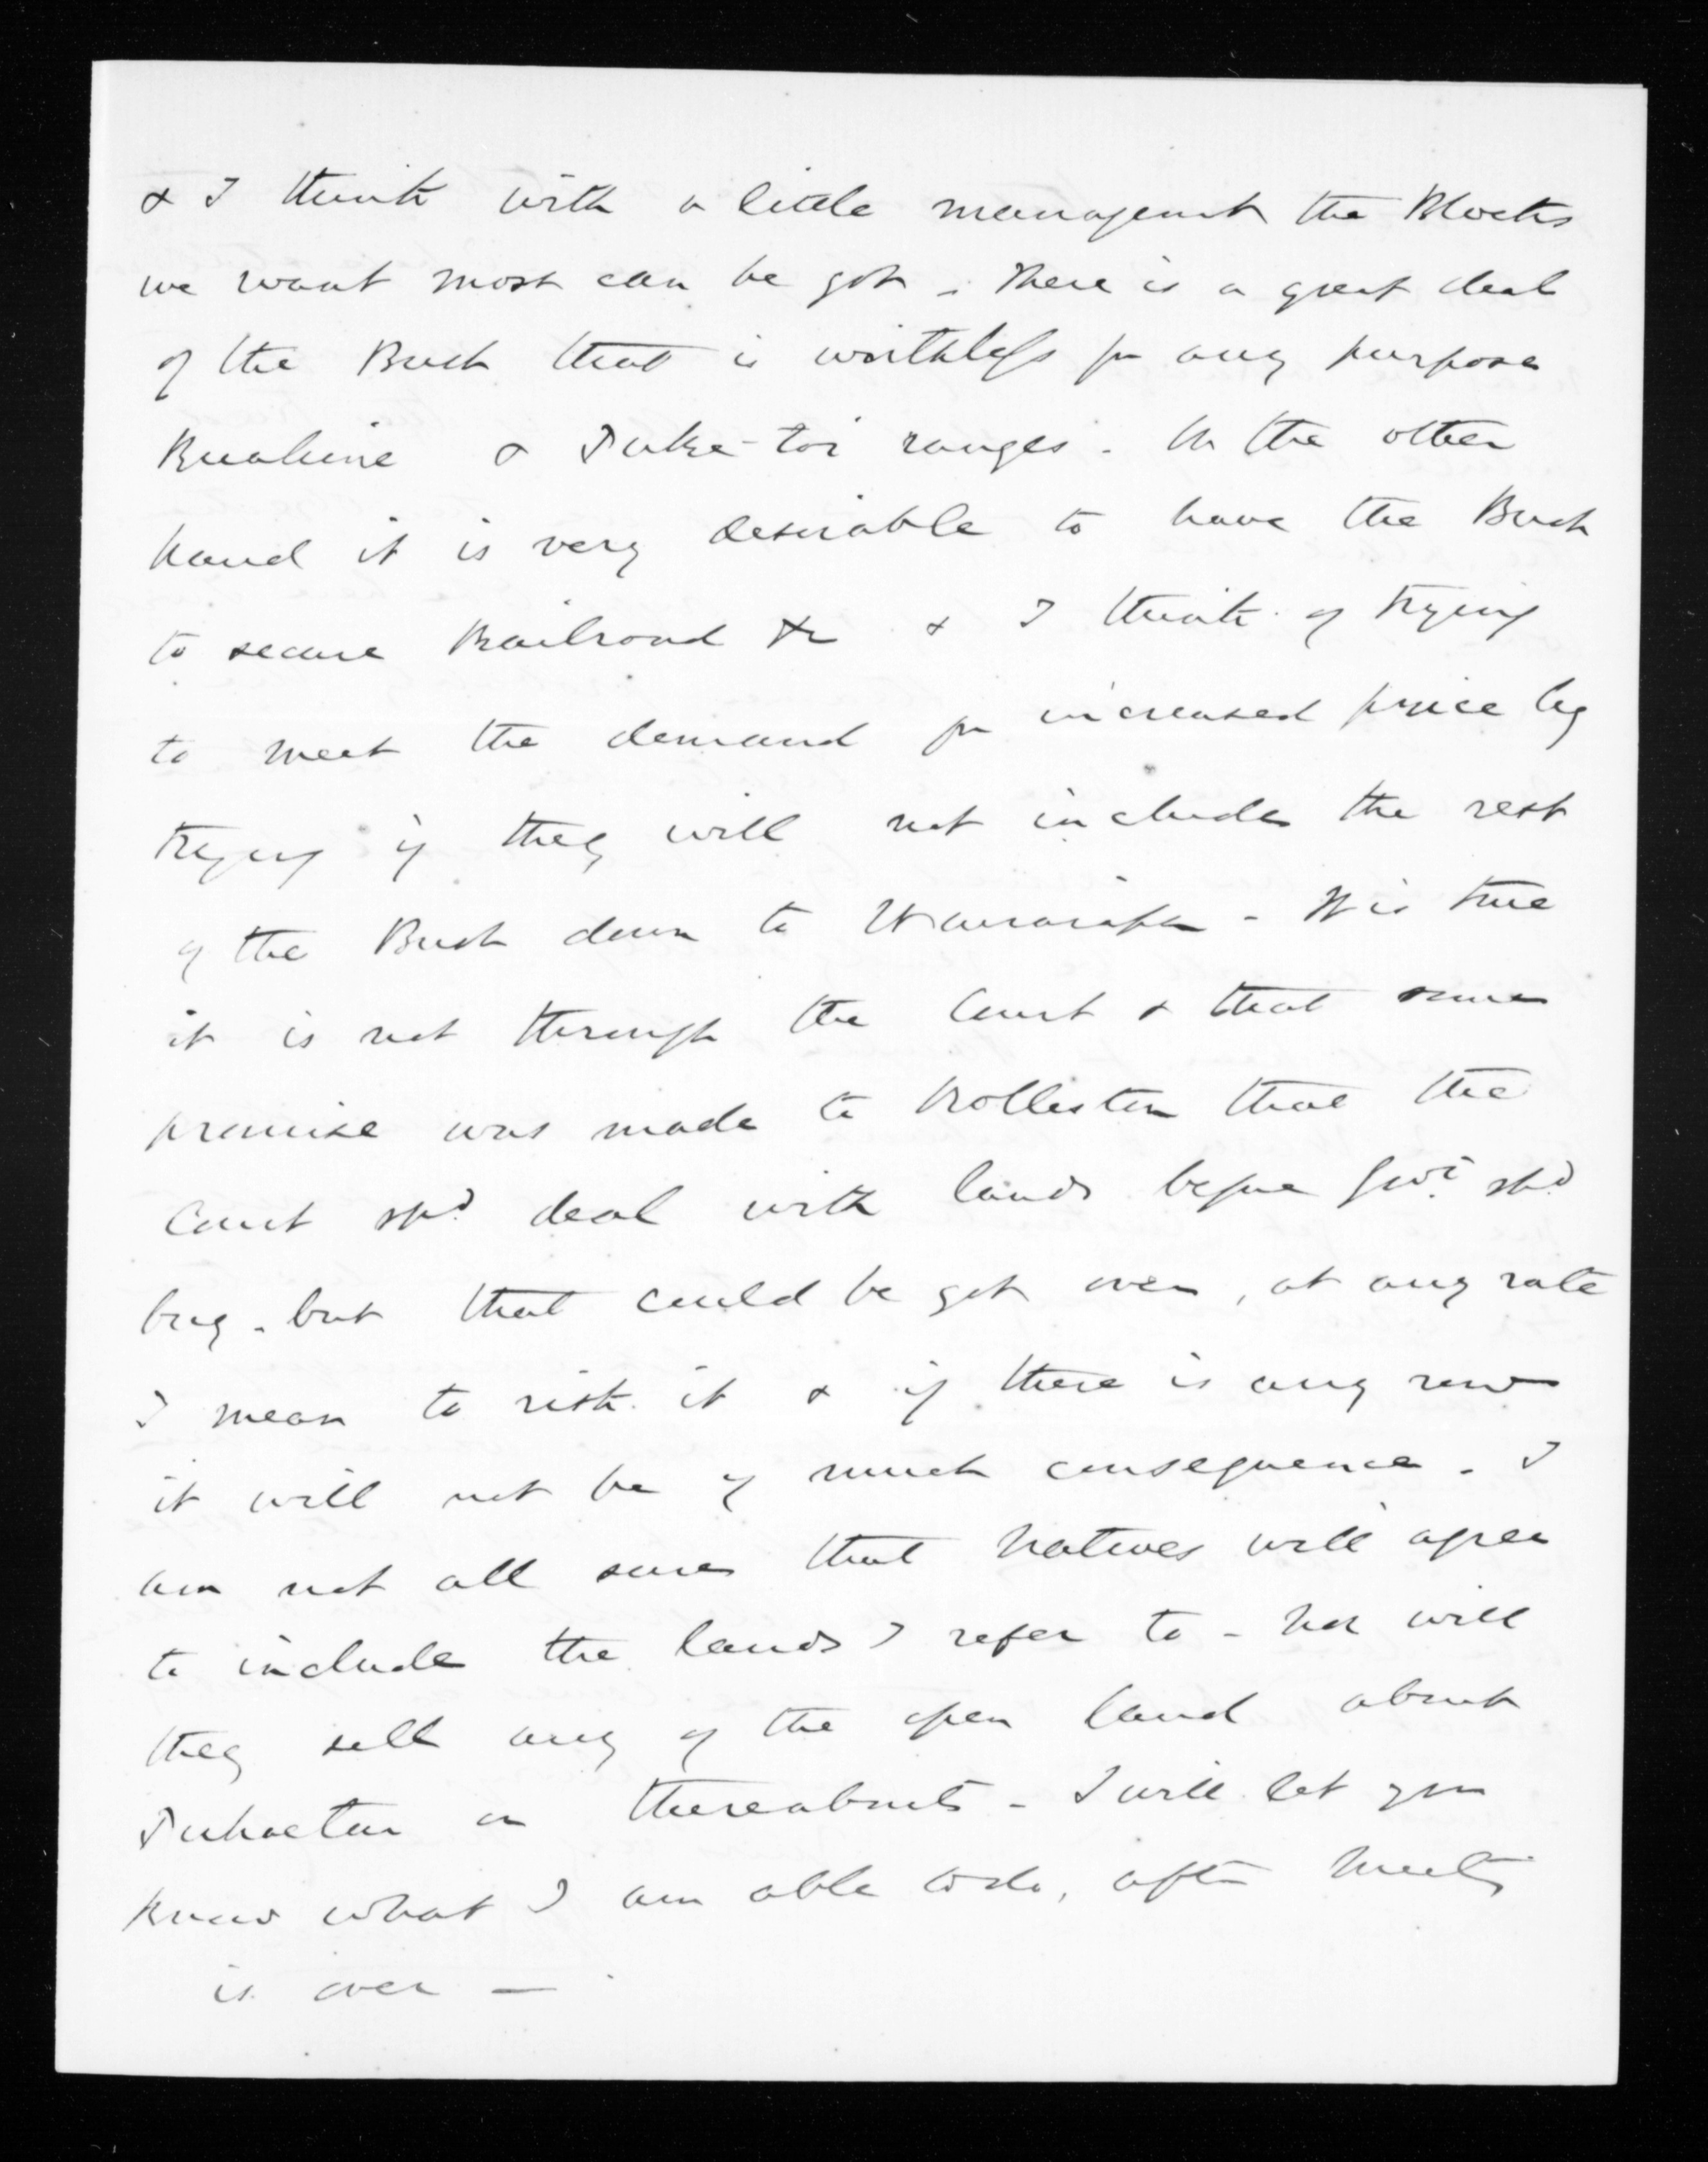 & I think with a little management the Blocks
we want most can be got - There is a great deal
of the Bush that is worthless for any purpose
Ruahine & Puke-toi ranges. On the other
hand it is very desirable to have the Bush
to secure Railroad &c & I think of trying
to meet the demand for increased price by
trying if they will not include the rest
of the Bush down to Wairarapa - It is true
it is not through the Court & that some
promise was made to Rolleston that the
Court shd deal with lands before Govt shd
buy - but that could be got over, at any rate
I mean to risk it & if there is any row
it will not be of much consequence. I
am not all sure that Natives will agree
to include the lands I refer to - Nor will
they sell any of the open land about
or thereabouts - I will let you
know what I am able to do, after meetg
is over -